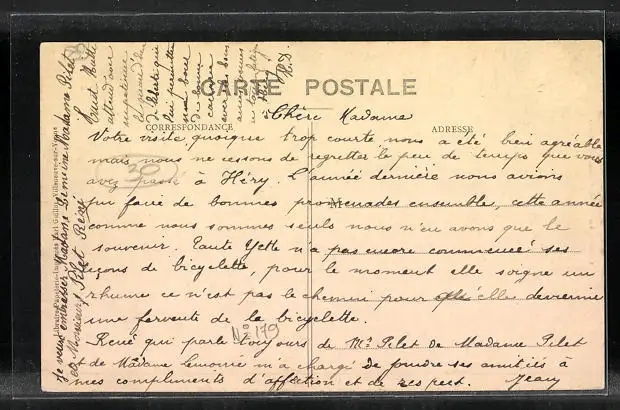 CARTE POSTALE
CORRESPONDANCE
ADRESSE
Chère Madame
Votre visite, quoique trop courte nous a été bien agréable
mais nous ne cessons de regretter le peu de temps que vous
avez passé à Héry. L'année dernière nous avions
pu faire de bonnes promenades ensemble, cette année
comme nous sommes seuls nous n'en avons que le
souvenir. Tante Yette n'a pas encore commencé ses
leçons de bicyclette, pour le moment elle soigne un
rhume ce n'est pas le chemin pour qu'elle devienne
une fervente de la bicyclette.
René qui parle toujours de Mr Pilet de Madame Pilet
et de Madame Lemoine m'a chargé de joindre ses amitiés à
mes compliments d'affection et de respect. Jean
Je veux embrasser Madame Lemoine Madame Pilet
et Monsieur Pilet René
attend avec
impatience
de
qui
lui
nous
de bonnes
avec
20
No 179